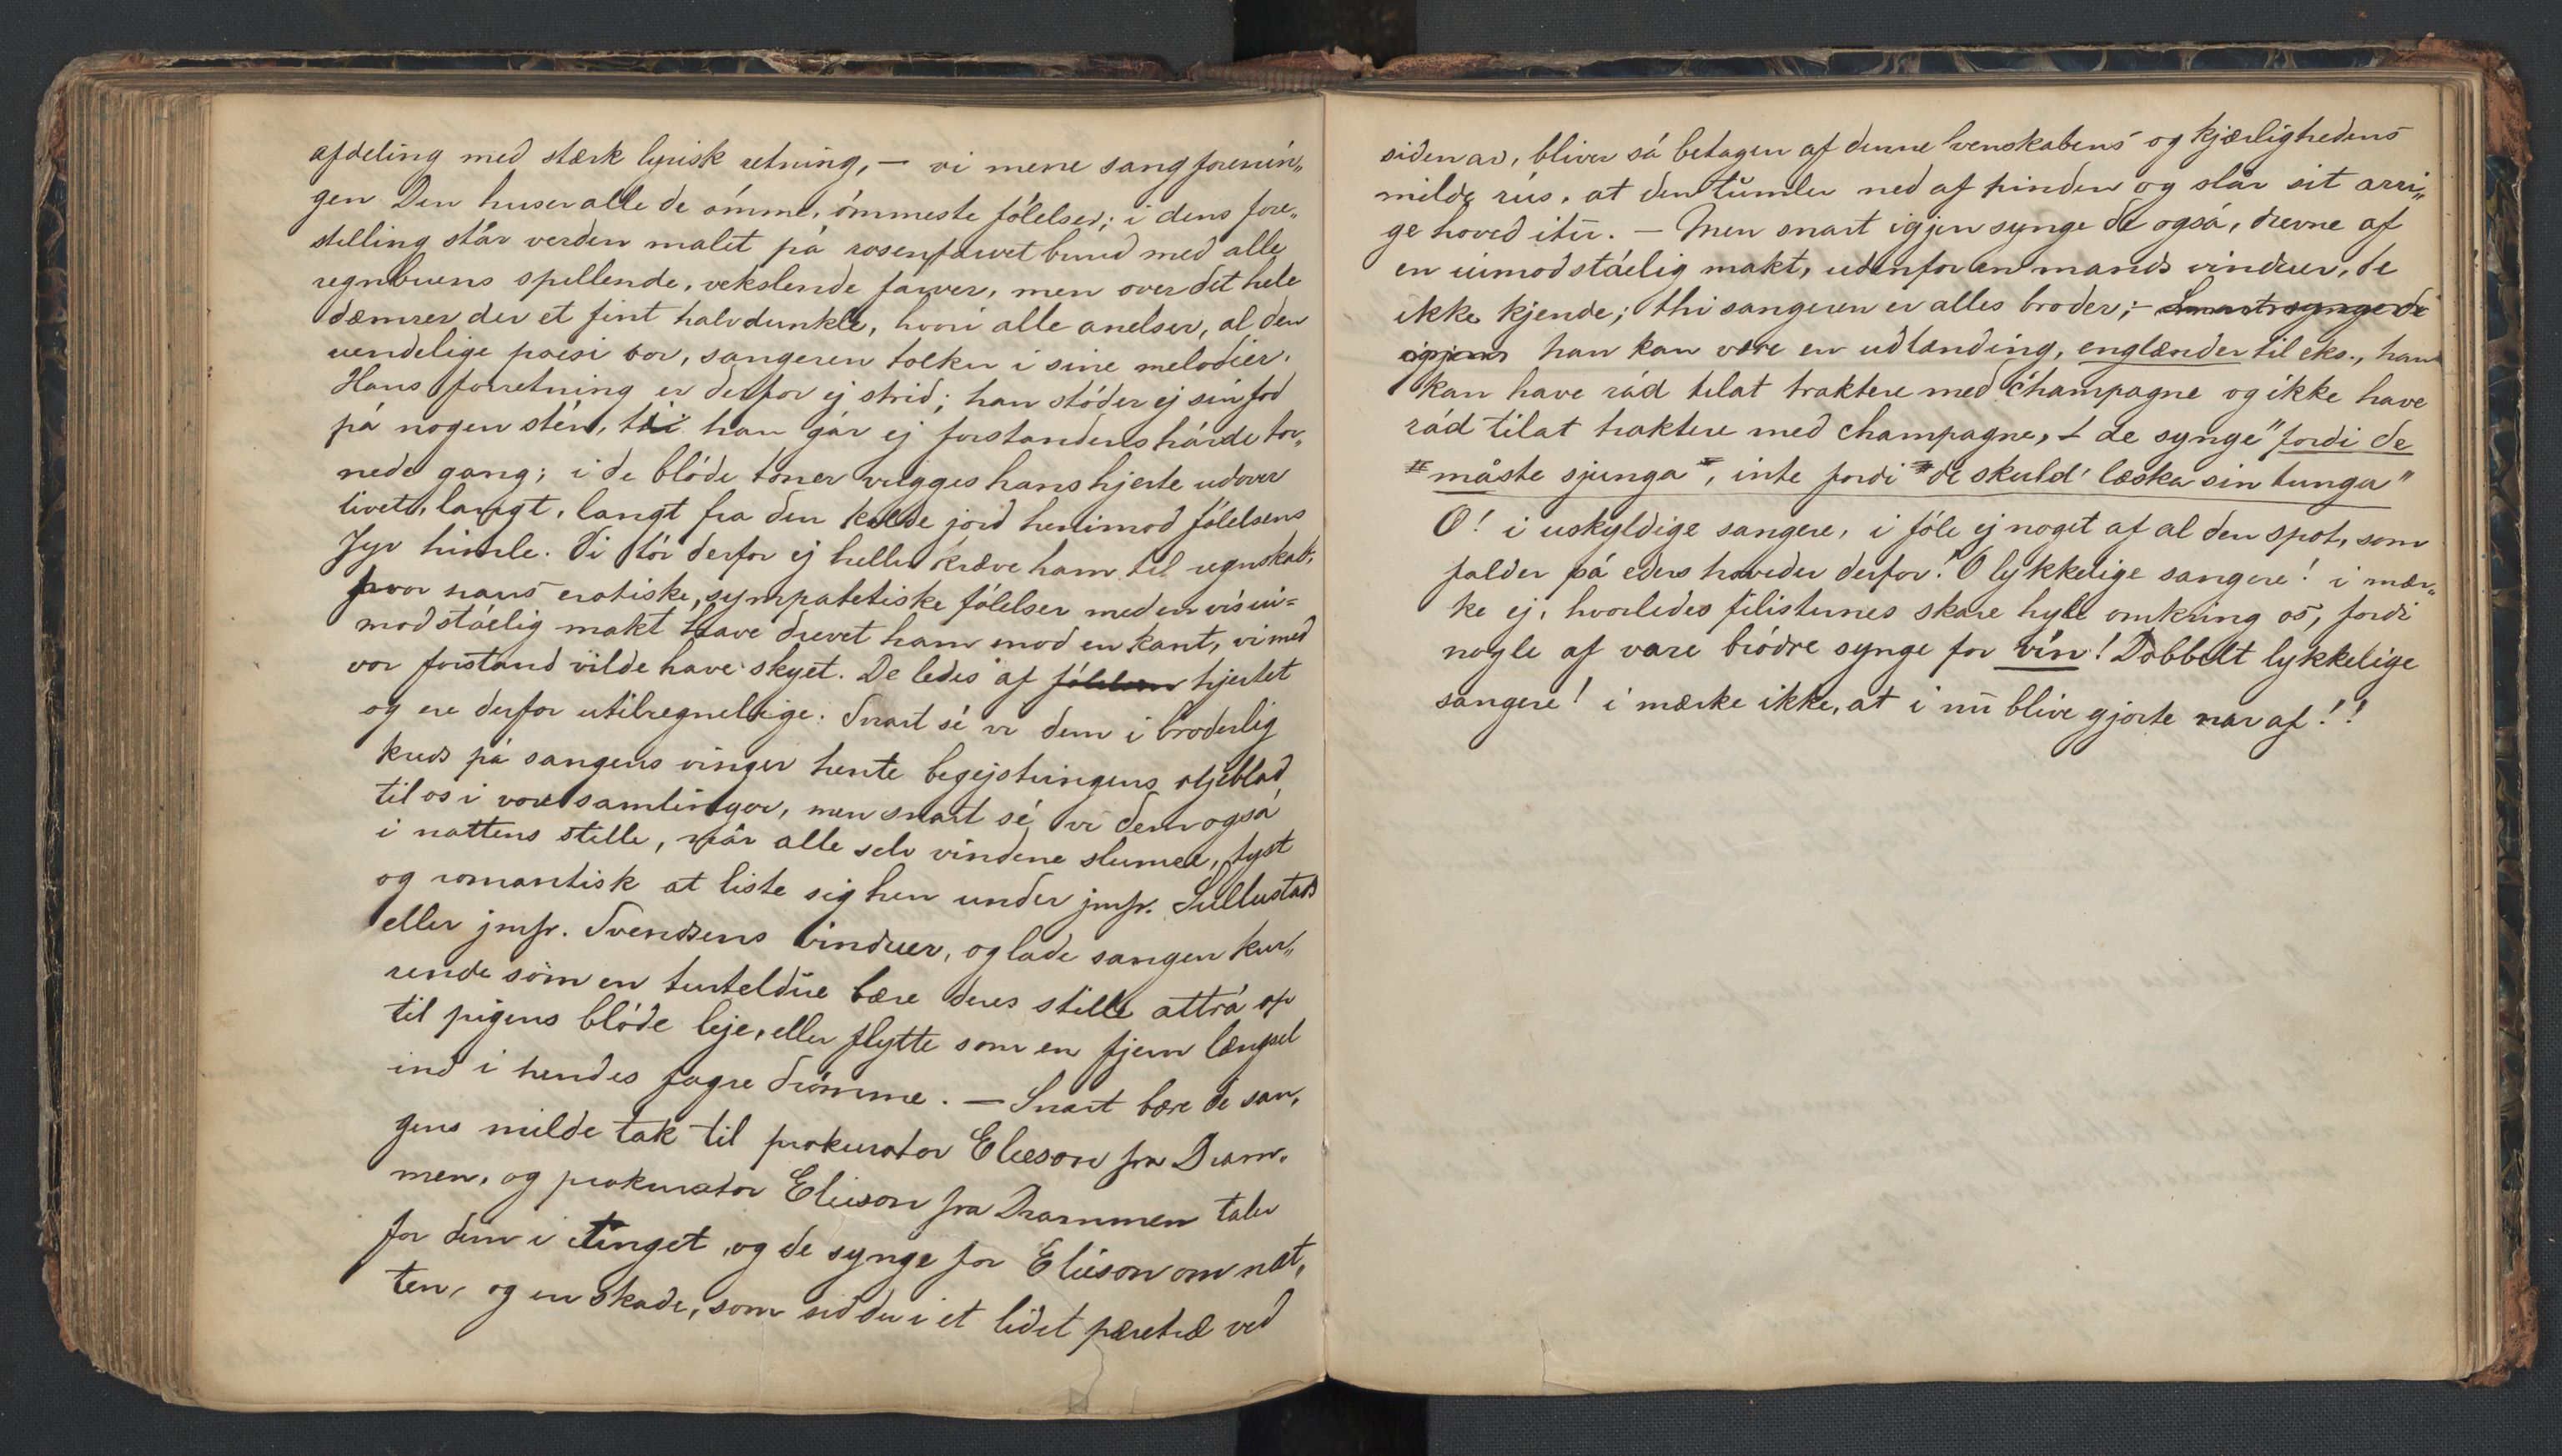 afdeling med stærk lyrisk retning, — vi mene sangforenin„
gen Den huser alle de ómme, ómmeste fólelser; i dens fore„
stilling står verden malet på rosenfarvet bund med alle
regnbuens spillende, vekslende farver, men over det hele
dæmrer der et fint halvdunkle, hvori alle anelser, al den
uendelige poesi bor, sangeren tolker i sine melodier.
Hans forretning er derfor ej strid; han stóder ej sin fod
på nogen stén, ti han går ej forstandens hárde tor„
nede gang; i de blóde toner vugges hans hjerte udover
livet, langt, langt fra den kolde jord henimod fólelsens
syv himle. Vi tór derfor ej heller kræve ham til regnskab,
hvor hans erotiske, sympatetiske fólelser med en vis ui=
modståelig makt have drevet ham mod en kant, vi med
vor forstand vilde have skyet. De ledes af fólelsen hjertet
og ere derfor utilregnelige. Snart sé vi dem i broderlig
kreds på sangens vinger hente begejstringens oljeblad
til os i vore samlinger, men snart sé vi dem også
i nattens stille, når alle selv vindene slumre, tyst
og romantisk at liste sig hen under jmfr. Sullustads
eller jmfr. Svendsens vinduer, og lade sangen kur„
rende som en turteldue bære deres stille attrå op
til pigens blóde leje, eller flytte som en fjern længsel
ind i hendes fagre drómme. — Snart bære de san„
gens milde tak til prokurator Elieson fra Dram„
men, og prokurator Elieson fra Drammen taler
for dem i tinget, og de synge for Elieson om nat„
ten, og en skade, som sidder i et lidet pæretræ ved
siden av, bliver så betagen af denne venskabens og kjærlighedens
milde rus, at den tumler ned af pinden og slår sit arri„
ge hoved itu. — Men snart igjen synge de også, drevne af
en uimodståelig makt, udenfor en mands vinduer, de
ikke kjende; thi sangeren er alles broder; – Snart synge de
igjen han kan være en udlænding, englænder til eks., han
kan have råd til at traktere med champagne og ikke have
råd til at traktere med champagne, + de synge "fordi de
måste sjunga", inte fordi "de skuld' læska sin tunga"
O! i uskyldige sangere, i fóle ej noget af al den spot, som
falder på eders hoveder derfor! O lykkelige sangere! i mær„
ke ej, hvorledes filisternes skare hyle omkring os, fordi
nogle af vore bródre synge for vin! Dobbelt lykkelige
sangere! i mærke ikke, at i nu blive gjorte nar af!!